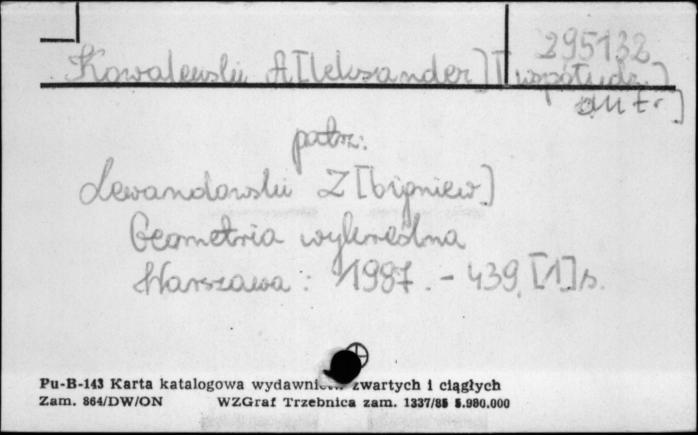 295132
Kowalewski A[leksander] [współudz.]
aut.]
patrz:
Lewandowski Z[bigniew]
Geometria wykreślna
Warszawa : 1987. - 439, [1] s.
Pu-B-143 Karta katalogowa wydawnictw zwartych i ciągłych
Zam. 864/DW/ON WZGraf Trzebnica zam. 1337/85 5.980.000